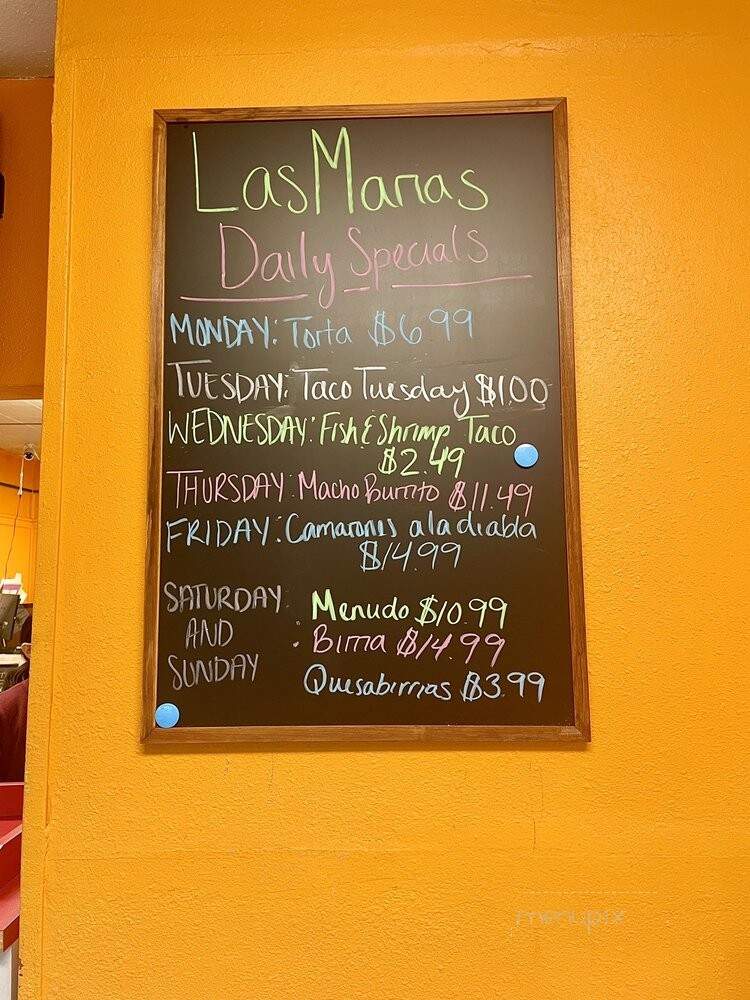 Las Marias
Daily Specials
MONDAY: Torta $6.99
TUESDAY: Taco Tuesday $1.00
WEDNESDAY: Fish & Shrimp Taco
$2.49
THURSDAY: Macho Burrito $11.49
FRIDAY: Camarones a la diabla
$14.99
SATURDAY
AND
SUNDAY
Menudo $10.99
Birria $14.99
Quesabirrias $3.99
menupix